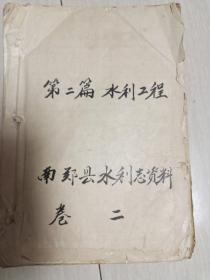 第二篇 水利工程
南郑县水利志资料
卷 二